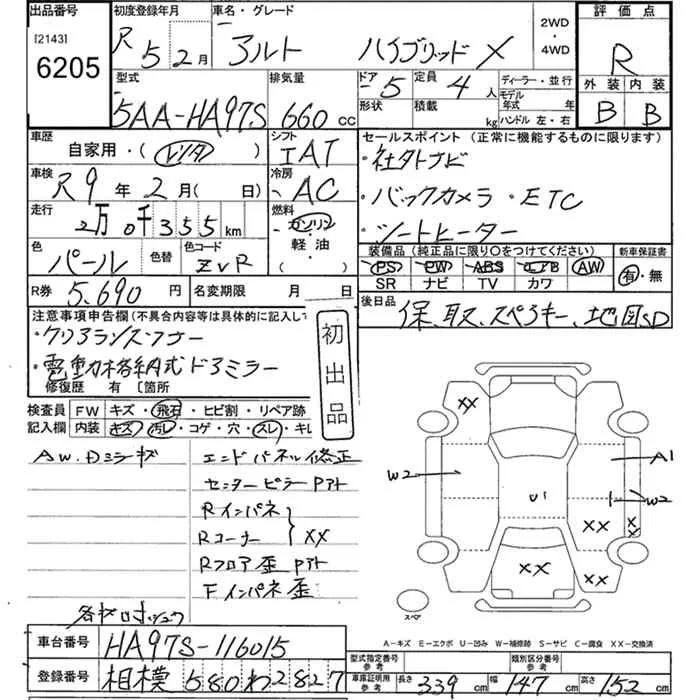 出品番号 初度登録年月 車名・グレード 2WD・4WD 評価点
[2143] 6205
R 5 2月 アルト ハイブリッド X R
型式 排気量 ドア 5 定員 4人 ディーラー・並行
外装 内装
5AA-HA97S 660 cc 形状 積載 kg モデル年式 年
ハンドル 左・右
B B
車歴 自家用・(レンタ) シフト IAT セールスポイント (正常に機能するものに限ります)
・社外ナビ
車検 R9年2月( 日) 冷房 AC ・バックカメラ・ETC
走行 2万0千355km 燃料 ガソリン・軽油・( ) ・シートヒーター
色 パール 色替 色コード ZVR
装備品 (純正品に限り○をつけてください) 新車保証書
PS PW ABS エアB AW 有・無
SR ナビ TV カワ
R券 5.690円 名変期限 月 日 後日品 保、取、スペアキー、地図SD
注意事項申告欄(不具合内容等は具体的に記入して
・クリアランスソナー
・電動格納式ドアミラー
修復歴 有 〔箇所
初出品
検査員記入欄 FW キズ・飛石・ヒビ割・リペア跡
内装 キズ・汚レ・コゲ・穴・スレ・キレ
AW.Dミラーキズ エンドパネル修正
センターピラーPアト
Rインパネ
Rコーナー } XX
Rフロア歪Pアト
Fインパネ歪
XX
W2 A1
U1 W2
XX XX
XX XX
スペア
A-キズ E-エクボ U-凹み W-補修跡 S-サビ C-腐食 XX-交換済
車台番号 HA97S-116015
型式指定番号 参考 類別区分番号 参考
登録番号 相模 580 わ 2827
車庫証明用 参考 長さ 339 cm 幅 147 cm 高さ 152 cm